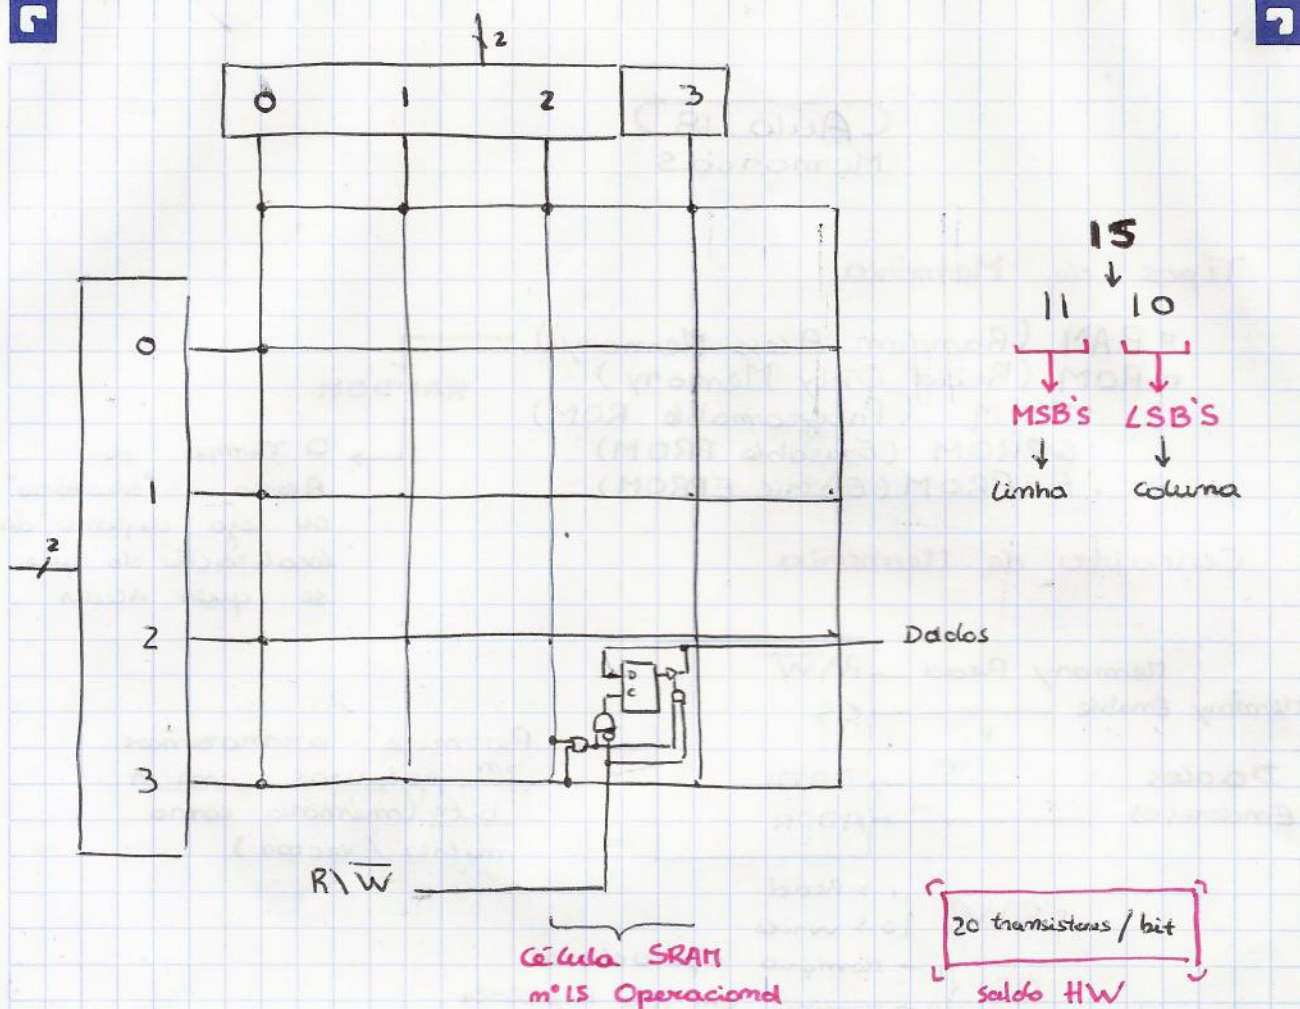 2
0 1 2 3
15
11 10
MSB'S LSB'S
Linha Coluna
0
1
2
2
3
Dados
D
C
R\W̅
Célula SRAM
nº 15 Operacional
20 transistores / bit
saldo HW